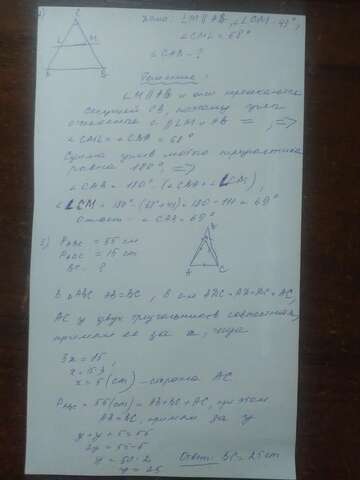 C
Дано: LM || AB, ∠LCM = 43°,
L M
∠CML = 68°
A B
∠CAB - ?
Решение:
LM || AB и они пересекаются
секущей CB, поэтому углы
∠CML = ∠CBA = 68°
Сумма углов любого треугольника
равна 180°, =>
Ответ: ∠CAB = 69°
5) PABC = 55 см
PADC = 15 см
BC - ?
B
A C
В △ABC AB = BC, в △ ADC = AD = DC = AC,
AC у двух треугольников совместная,
примем её за x, тогда
3x = 15,
x = 15:3
x = 5 (см) - сторона AC
PABC = 55 (см) = AB + BC + AC, при этом
AB = BC, примем за y
y + y + 5 = 55
2y = 55 - 5
y = 50 : 2
y = 25
Ответ: BC = 25 см